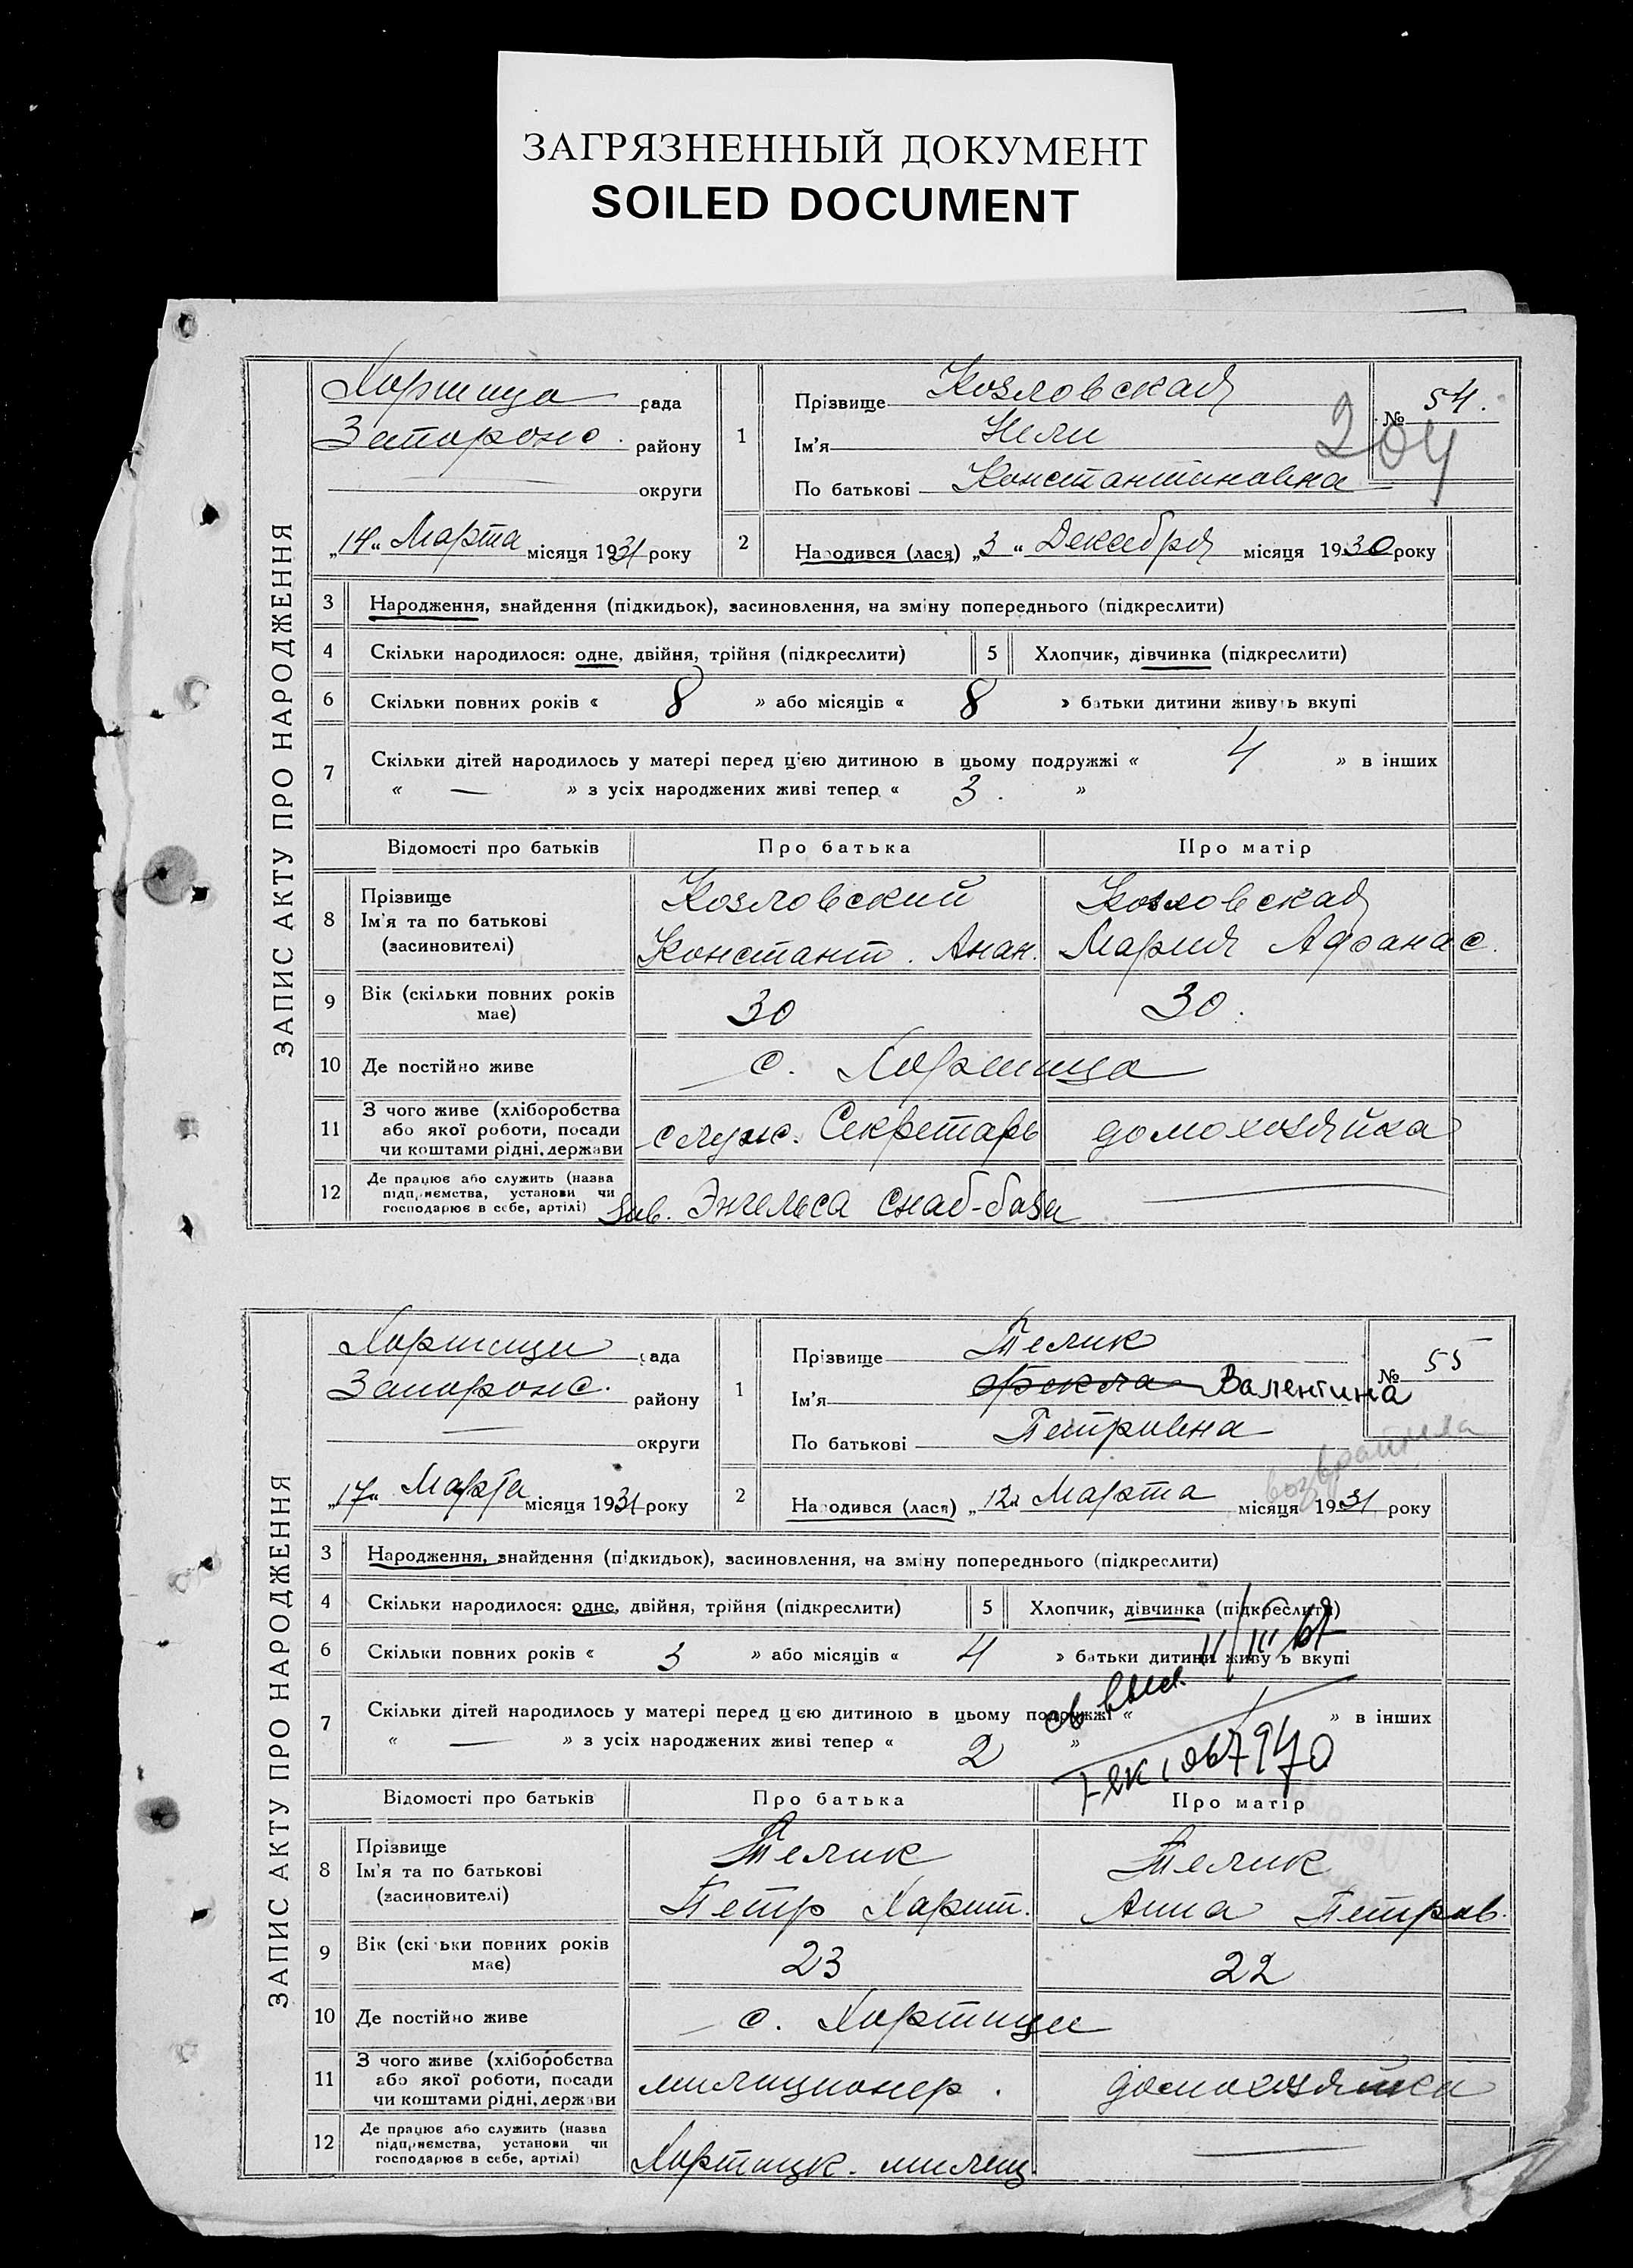 ЗАГРЯЗНЕННЫЙ ДОКУМЕНТ
SOILED DOCUMENT
ЗАПИС АКТУ ПРО НАРОДЖЕННЯ
Хортица рада
Запорожс. району
округи
„14“ Марта місяця 1931 року
1
Прізвище Козловская
Ім'я Нели
По батькові Константиновна
№ 54.
204
2
Народився (лася) „3“ Декабря місяця 1930 року
3 Народження, знайдення (підкидьок), засиновлення, на зміну попереднього (підкреслити)
4 Скільки народилося: одне, двійня, трійня (підкреслити)
5 Хлопчик, дівчинка (підкреслити)
6 Скільки повних років « 8 » або місяців « 8 » батьки дитини живуть вкупі
7 Скільки дітей народилось у матері перед цією дитиною в цьому подружжі « 4 » в інших
« — » з усіх народжених живі тепер « 3. »
Відомості про батьків Про батька Про матір
8 Прізвище Козловский Козловская
Ім'я та по батькові
(засиновителі) Констант. Анан. Мария Афанас.
9 Вік (скільки повних років має) 30 30.
10 Де постійно живе с. Хортица
11 З чого живе (хліборобства
або якої роботи, посади служ. Секретарь домохозяйка
чи коштами рідні, держави
12 Де працює або служить (назва
підприємства, установи чи
господарює в себе, артілі) Зав. Энгельса снаб-база
ЗАПИС АКТУ ПРО НАРОДЖЕННЯ
Хортици рада
Запорожс. району
округи
„17“ Марта місяця 1931 року
1
Прізвище Телик
Ім'я Фекла Валентина
По батькові Петровна
№ 55
возвратила
2
Народився (лася) „12“ Марта місяця 1931 року
3 Народження, знайдення (підкидьок), засиновлення, на зміну попереднього (підкреслити)
4 Скільки народилося: одне, двійня, трійня (підкреслити)
5 Хлопчик, дівчинка (підкреслити)
6 Скільки повних років « 3 » або місяців « 4 » батьки дитини живуть вкупі
7 Скільки дітей народилось у матері перед цією дитиною в цьому подружжі « » в інших
« — » з усіх народжених живі тепер « 2 »
Відомості про батьків Про батька Про матір
8 Прізвище Телик Телик
Ім'я та по батькові
(засиновителі) Петр Харит. Анна Петров.
9 Вік (скільки повних років має) 23 22
10 Де постійно живе с. Хортици
11 З чого живе (хліборобства
або якої роботи, посади милиционер. домохозяйка
чи коштами рідні, держави
12 Де працює або служить (назва
підприємства, установи чи
господарює в себе, артілі) Хортицк. милиц.